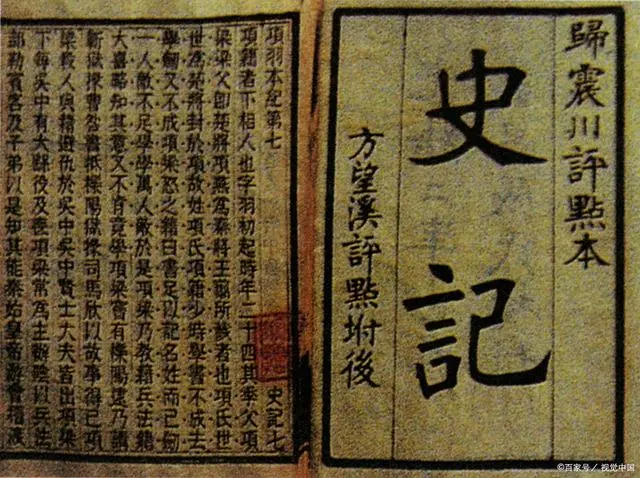 歸震川評點本
史記
方望溪評點坿後
項羽本紀第七 史記七
項籍者下相人也字羽初起時年二十四其季父項
梁梁父即楚將項燕爲秦將王翦所戮者也項氏世
世爲楚將封於項故姓項氏項籍少時學書不成去
學劍又不成項梁怒之籍曰書足以記名姓而已劍
一人敵不足學學萬人敵於是項梁乃教籍兵法籍
大喜略知其意又不肯竟學項梁嘗有櫟陽逮乃請
蘄獄掾曹咎書抵櫟陽獄掾司馬欣以故事得已項
梁殺人與籍避仇於吳中吳中賢士大夫皆出項梁
下每吳中有大繇役及喪項梁常爲主辦陰以兵法
部勒賓客及子弟以是知其能秦始皇帝游會稽渡
©百家号／视觉中国